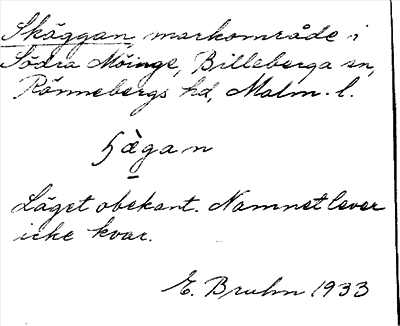 Skäggan, markområde i
Södra Möinge, Billeberga sn,
Rönnebergs hd, Malm. l.
Läget obekant. Namnet lever
icke kvar.
E. Bruhn 1933